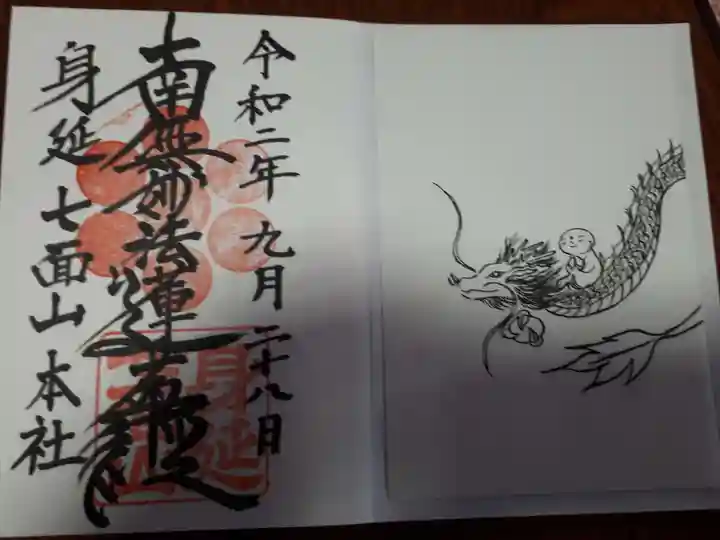 令和二年九月二十八日
南無妙法蓮華経
身延七面山本社
身延